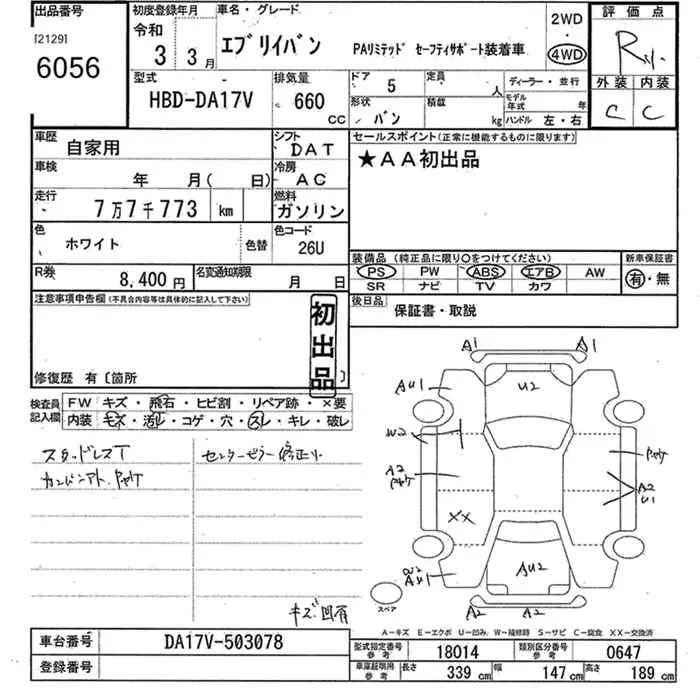 出品番号
[2129]
6056
初度登録年月
令和
3 3月
車名・グレード
エブリイバン PAリミテッド セーフティサポート装着車
2WD
・
4WD
評価点
R
外装 内装
C C
型式
HBD-DA17V
排気量
660
CC
ドア
5
定員
人
ディーラー・並行
形状
バン
積載
kg
モデル年式
年
ハンドル 左・右
車歴
自家用
シフト
DAT
車検
年 月( 日)
冷房
AC
走行
7万7千773 km
燃料
ガソリン
色
ホワイト
色替
色コード
26U
R券
8,400円
名変通知期限
月 日
セールスポイント(正常に機能するものに限ります)
★AA初出品
装備品 (純正品に限り○をつけてください)
PS PW ABS エアB AW
SR ナビ TV カワ
新車保証書
有・無
後日品
保証書・取説
注意事項申告欄(不具合内容等は具体的に記入して下さい)
初出品
修復歴 有〔箇所 〕
検査員記入欄
FW キズ・飛石・ヒビ割・リペア跡・×要
内装 モズ・汚れ・コゲ・穴・スレ・キレ・破レ
スタッドレスT
センターピラー修正リ
キズ凹有
A1 A1
AU1
U2
W2
A2
A2
U1
XX
AU2
AU1
A2 A2
スペア
A-キズ E-エクボ U-凹み W-補修跡 S-サビ C-腐食 XX-交換済
車台番号
DA17V-503078
登録番号
型式指定番号 参考
18014
類別区分番号 参考
0647
車庫証明用 参考
長さ 339 cm
幅 147 cm
高さ 189 cm